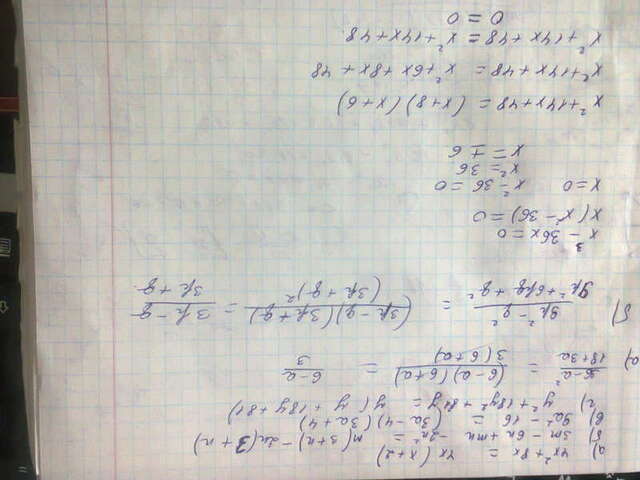 а) 4x² + 8x = 4x (x+2)
б) 3m − 6n + mn − 2n² = m(3+n) − 2n(3+n)
в) 9a² − 16 = (3a−4)(3a+4)
г) y³ + 18y² + 81y = y(y² + 18y + 81)
а) 36−a² / 18+3a = (6−a)(6+a) / 3(6+a) = 6−a / 3
б) 9p² − q² / 9p² + 6pq + q² = (3p−q)(3p+q) / (3p+q)² = 3p−q / 3p+q
x³ − 36x = 0
x(x² − 36) = 0
x=0 x² − 36 = 0
x² = 36
x = ± 6
x² + 14x + 48 = (x+8)(x+6)
x² + 14x + 48 = x² + 6x + 8x + 48
x² + 14x + 48 = x² + 14x + 48
0 = 0